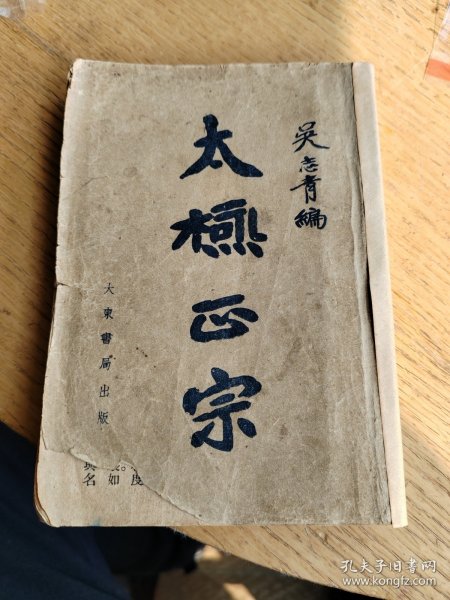 吳志青編
太極正宗
大東書局出版
度
如
名
孔夫子旧书网
www.kongfz.com